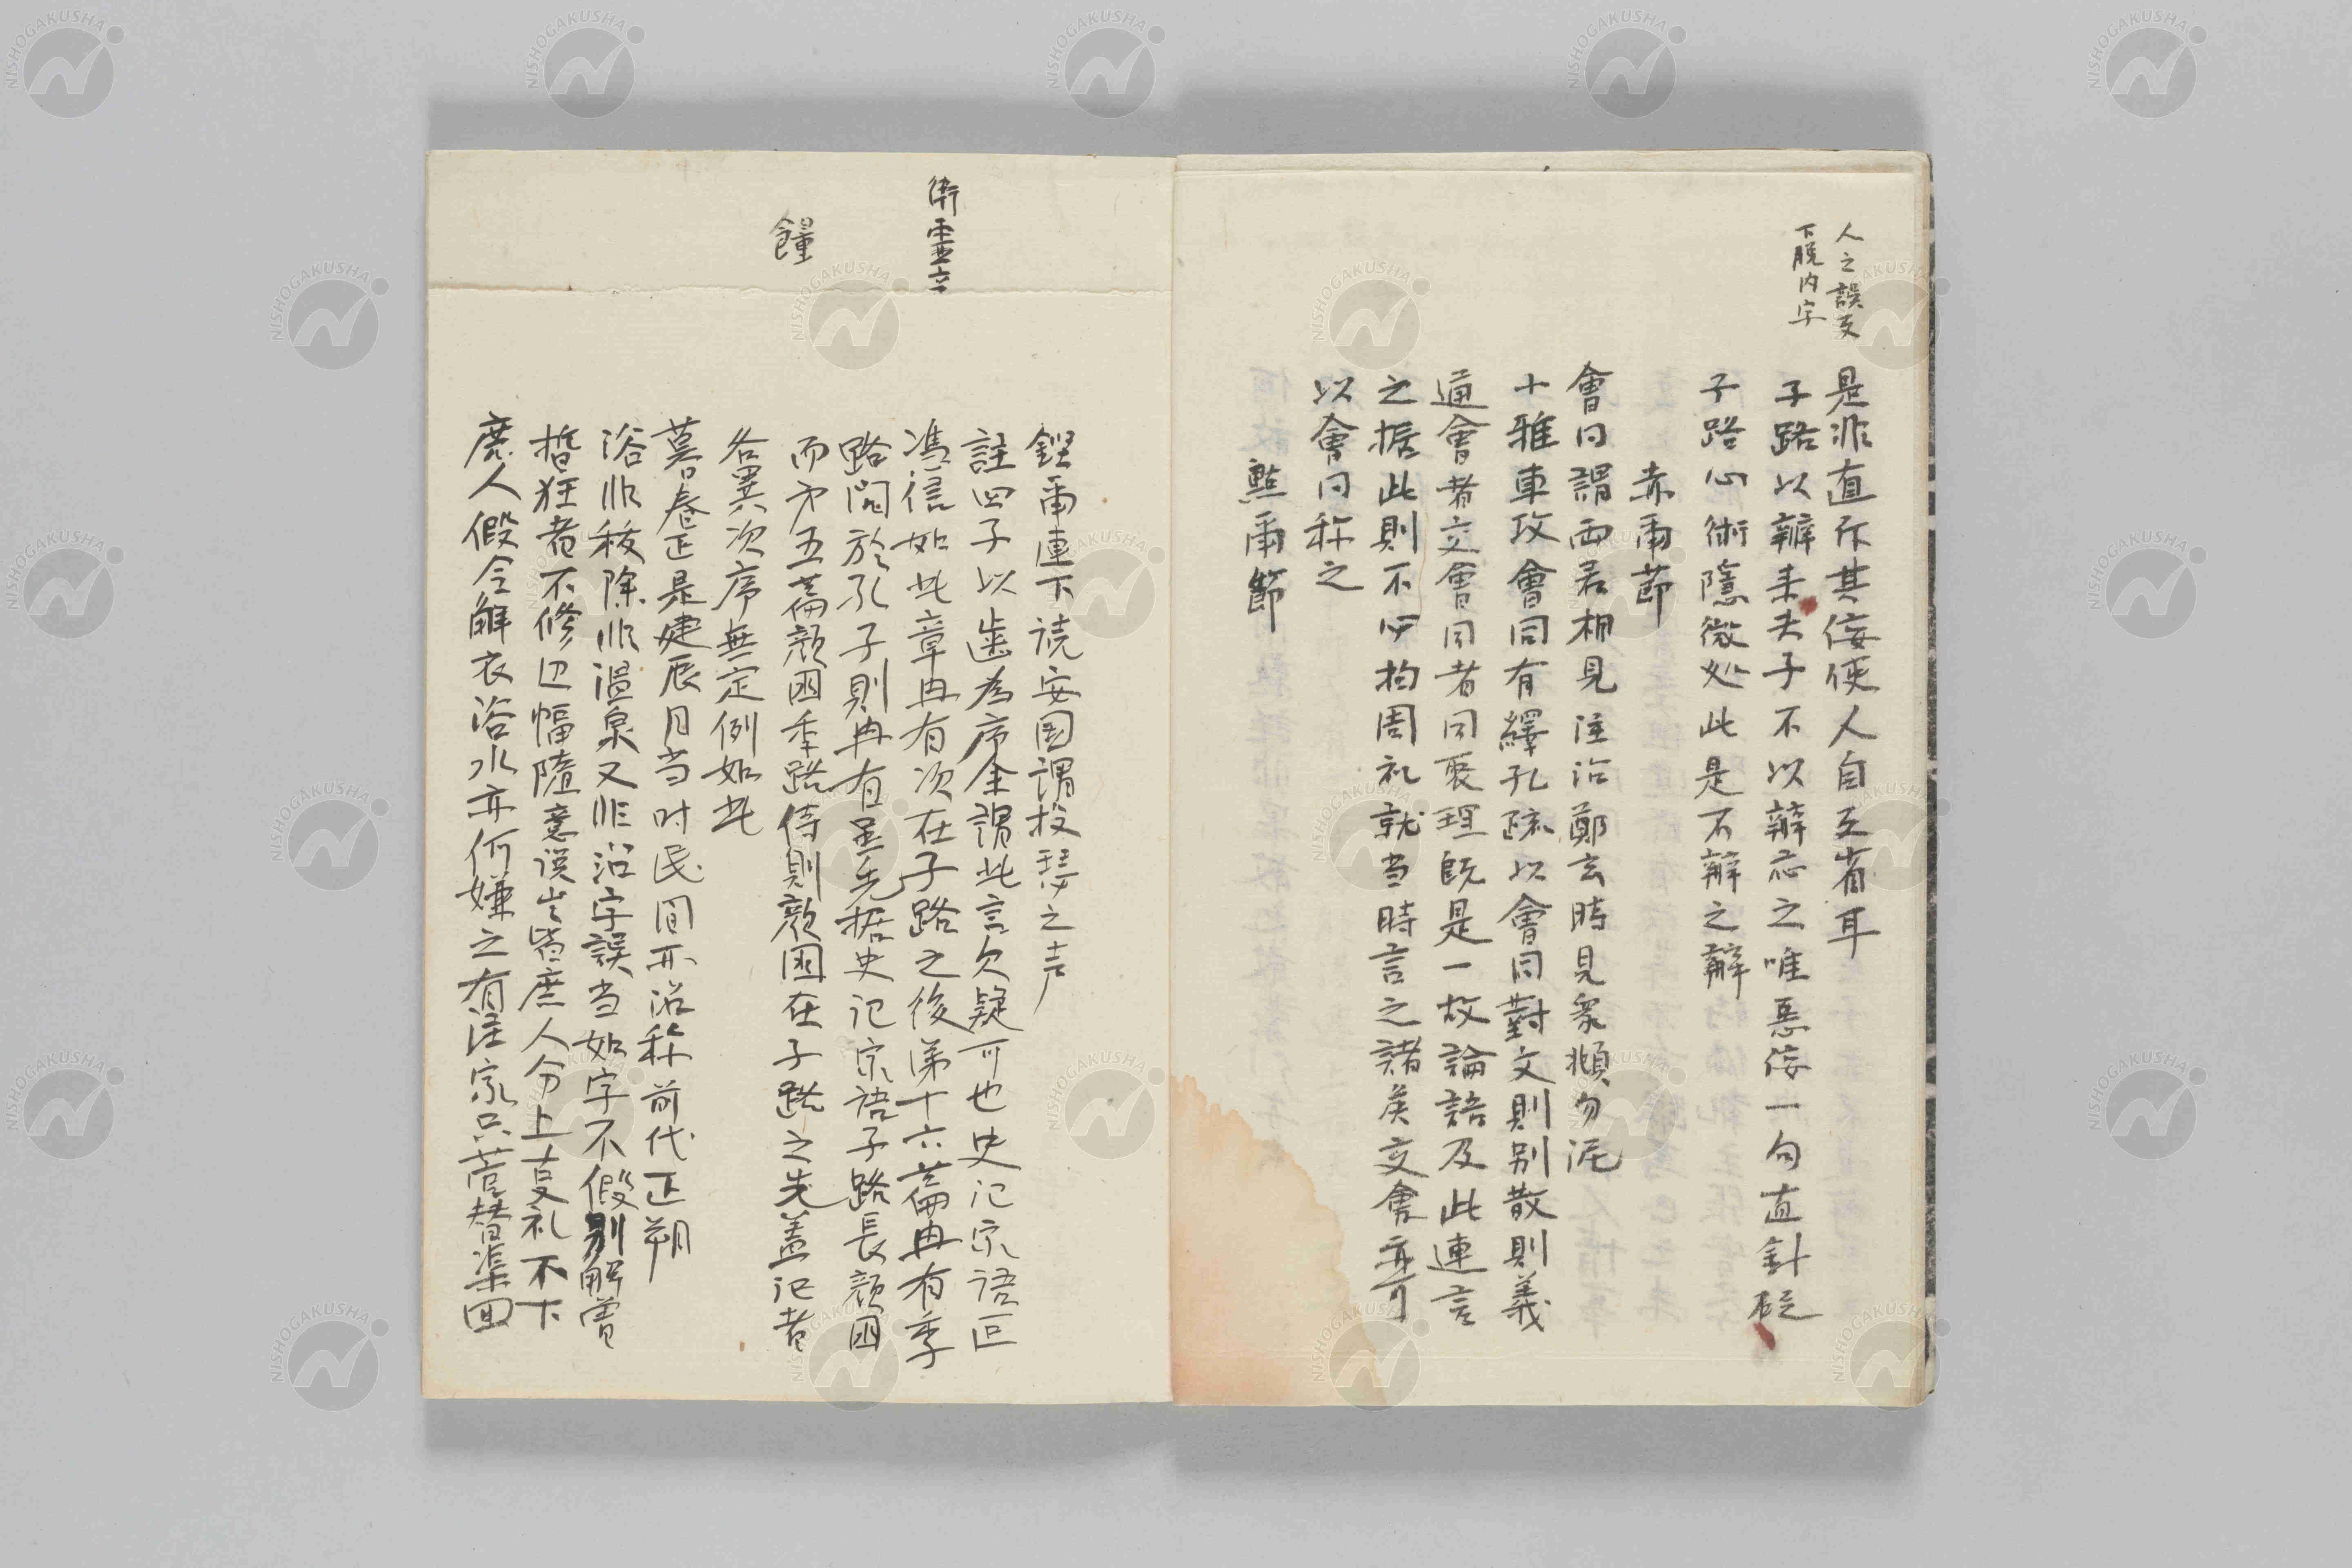 人之誤叉
下脱内字
是非直斥其佞使人自互省耳
子路以辯未夫子不以辯応之唯惡佞一句直針砭
子路心術隱微処此是不辯之辭
赤爾節
會同謂両君相見注沿鄭玄時見衆頫勿泥
十雅車攻會同有繹孔疏以會同對文則別散則義
通會者交會同者同聚理既是一故論語及此連言
之據此則不必拘周礼就当時言之諸矦交會亦可
以會同称之
點爾節
衛霊章
䭚
鏗爾連下読安国謂投琴之声
註四子以齒為序余謂此言欠疑可也史记家语叵
馮信如此章冉有次在子路之後第十六萹冉有季
路問於孔子則冉有居先据史记家语子路長顔囬
而才五萹顔囬季路侍則顔囬在子路之先盖记者
各異次序無定例如此
莫春正是建辰月当时民间亦沿称前代正朔
浴非袚除非温泉又非沿字誤当如字不假別解曽
晳狂者不修辺幅隨意误岂皆庶人分上㕝礼不下
庶人假令解衣浴水亦何嫌之有注家只管替渠回